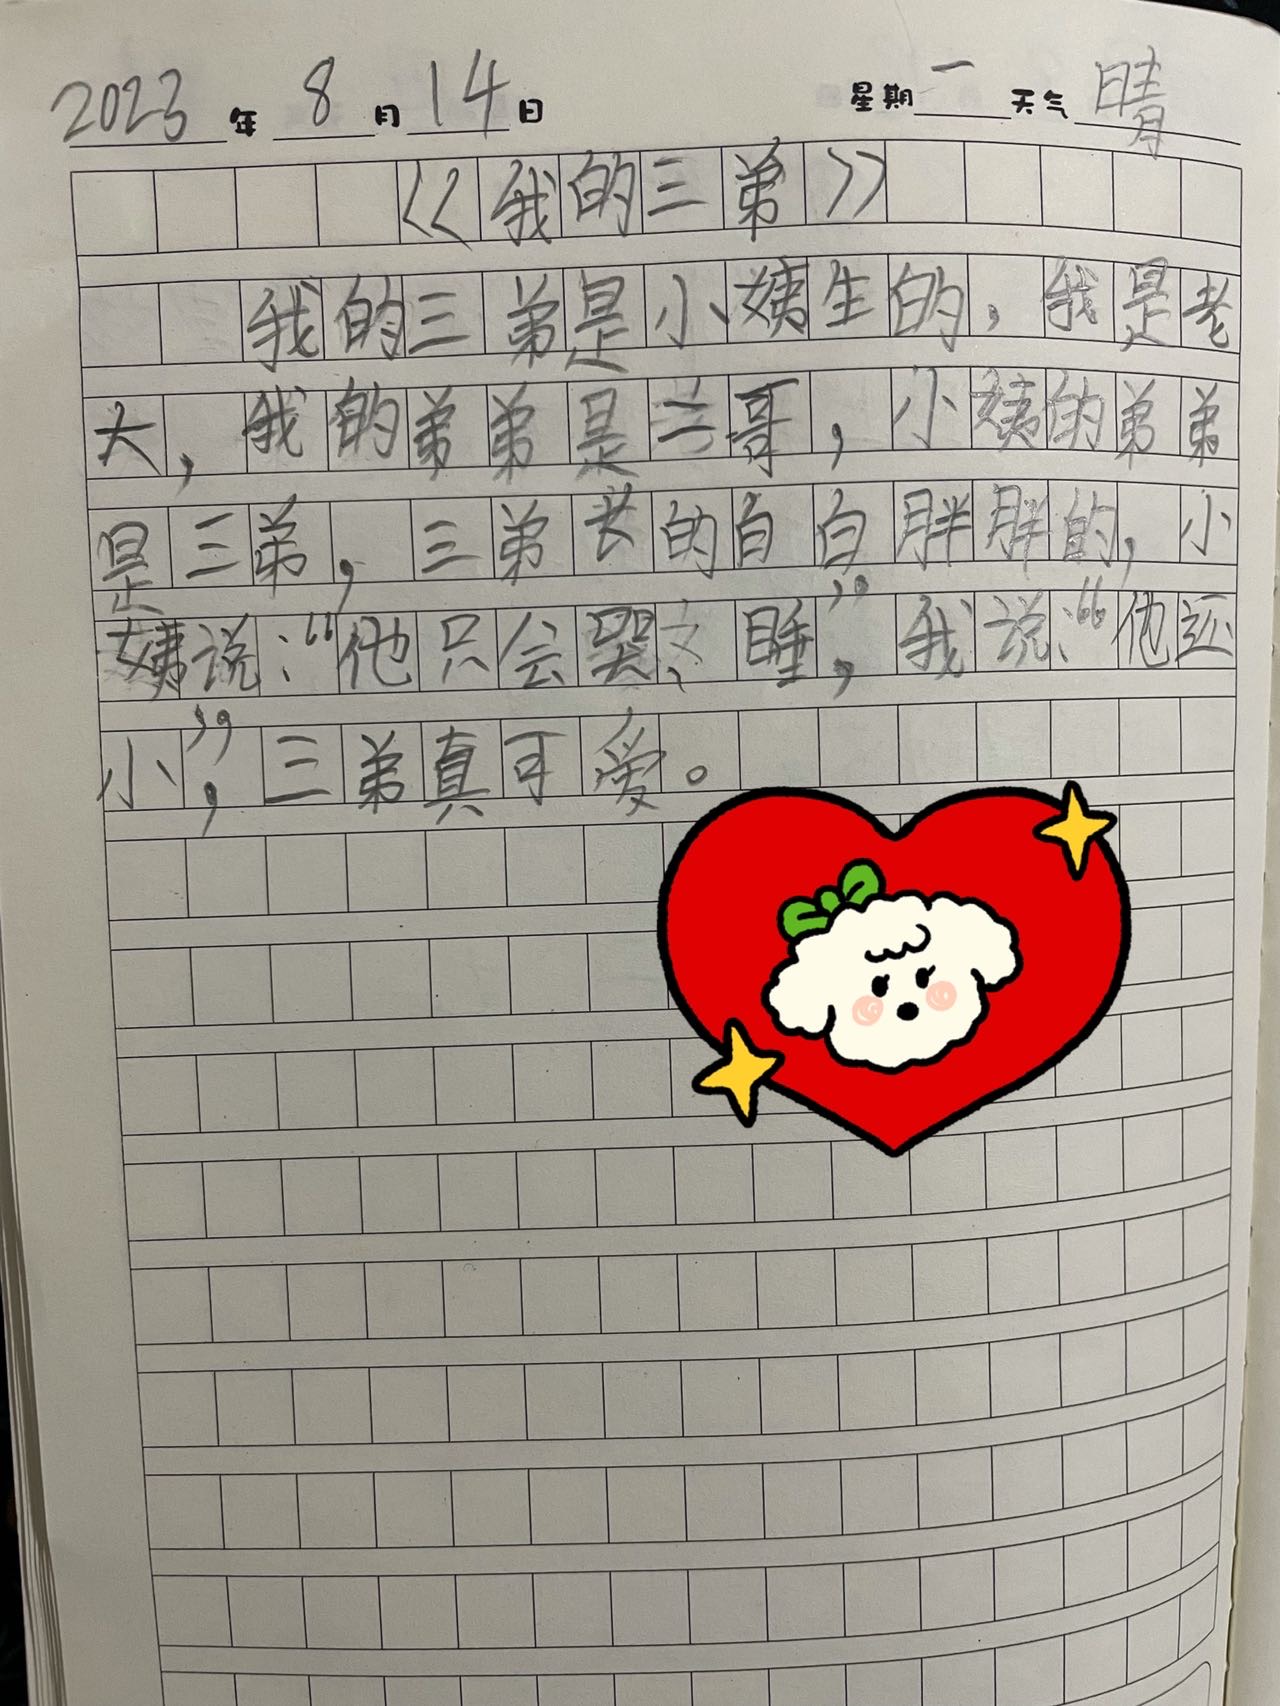 2023年 8月 14日 星期一 天气 晴
《我的三弟》
我的三弟是小姨生的，我是老
大，我的弟弟是二哥，小姨的弟弟
是三弟，三弟长的白白胖胖的，小
姨说：“他只会哭、睡”，我说：“他还
小”，三弟真可爱。